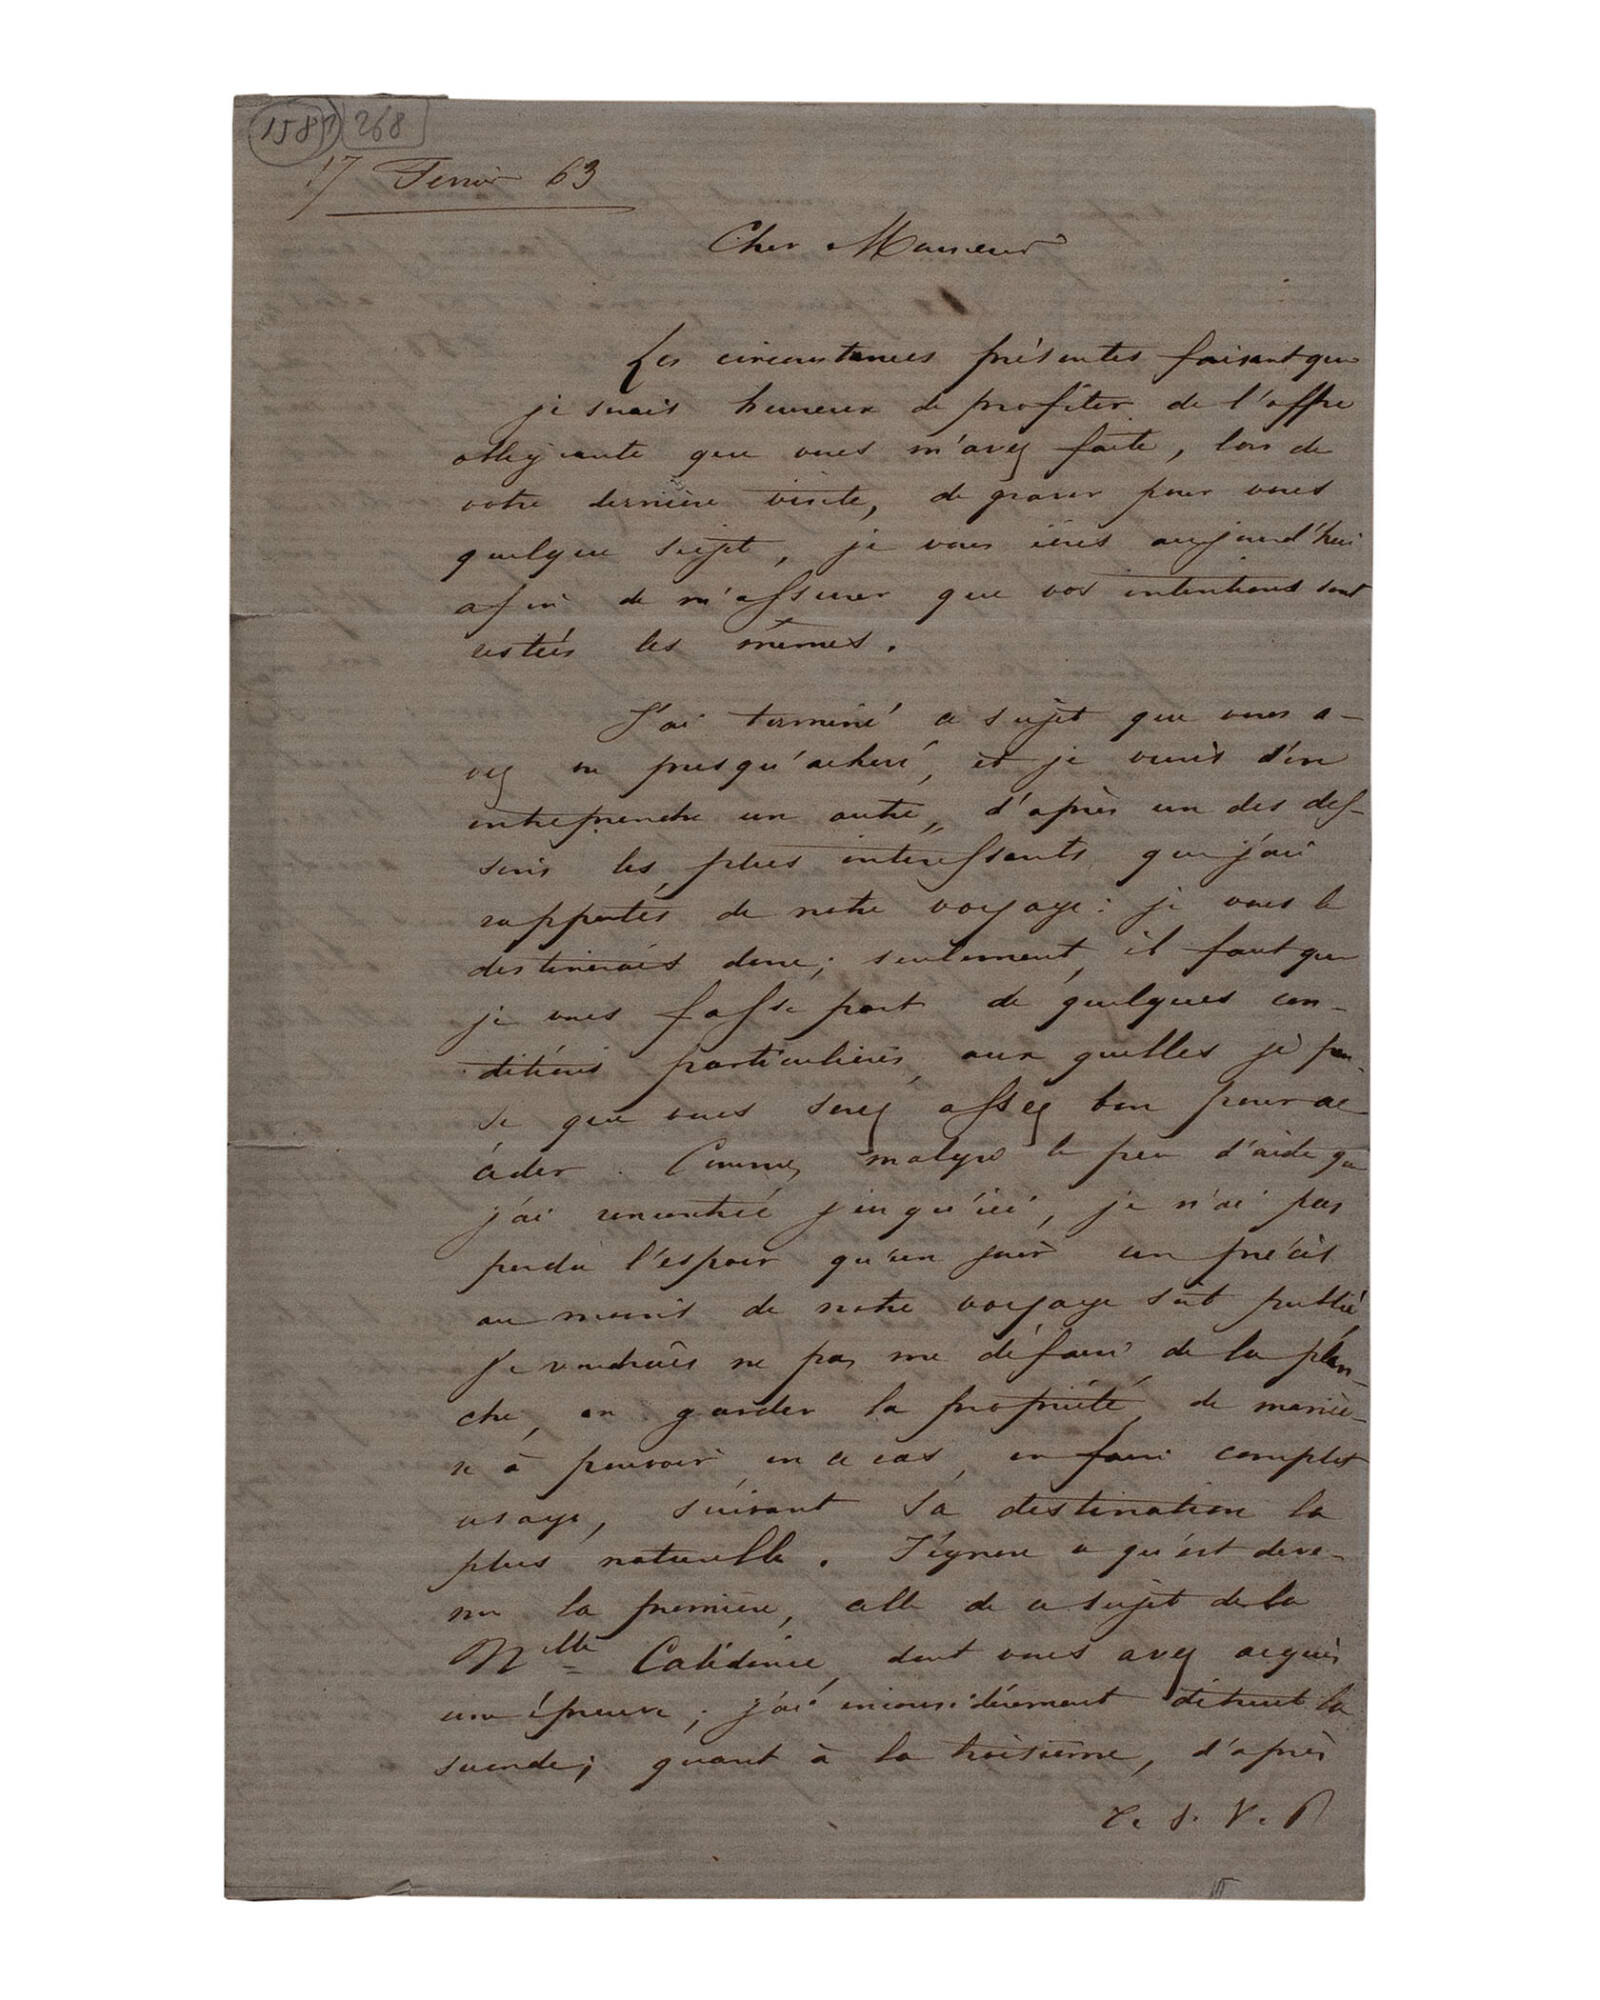 1587 268
17 Fevrier 63
Cher Monsieur
Les circonstances présentes faisant que
je serais heureux de profiter de l'offre
obligeante que vous m'avez faite, lors de
votre dernière visite, de graver pour vous
quelque sujet, je vous écris aujourd'hui
afin de m'assurer que vos intentions sont
restées les mêmes.
J'ai terminé ce sujet que vous a-
vez vu presqu'achevé, et je viens d'en
entreprendre un autre, d'après un des des-
sins les plus interessants que j'aie
rapportés de notre voyage: je vous le
destinerais donc; seulement, il faut que
je vous fasse part de quelques con-
ditions particulières aux quelles je pen-
se que vous serez assez bon pour ac-
céder. Comme, malgré le peu d'aide que
j'ai rencontrée jusqu'ici, je n'ai pas
perdu l'espoir qu'un jour un précis
au moins de notre voyage soit publié
je voudrais ne pas me défaire de la plan-
che, en garder la propriété, de maniè-
re à pouvoir, en ce cas, en faire complet
usage, suivant sa destination la
plus naturelle. J'ignore ce qu'est deve-
nu la première, celle de ce sujet de la
Nlle Calédonie, dont vous avez acquis
une épreuve; j'ai inconsidérément détruit la
seconde; quant à la troisième, d'après
T. S. V. P